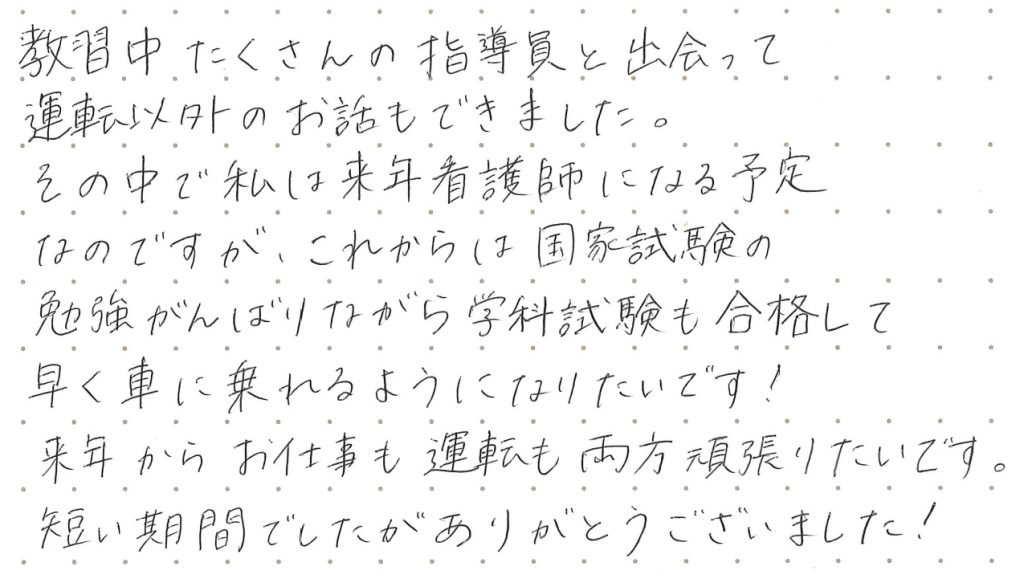 教習中たくさんの指導員と出会って
運転以外のお話もできました。
その中で私は来年看護師になる予定
なのですが、これからは国家試験の
勉強がんばりながら学科試験も合格して
早く車に乗れるようになりたいです!
来年からお仕事も運転も両方頑張りたいです。
短い期間でしたがありがとうございました!